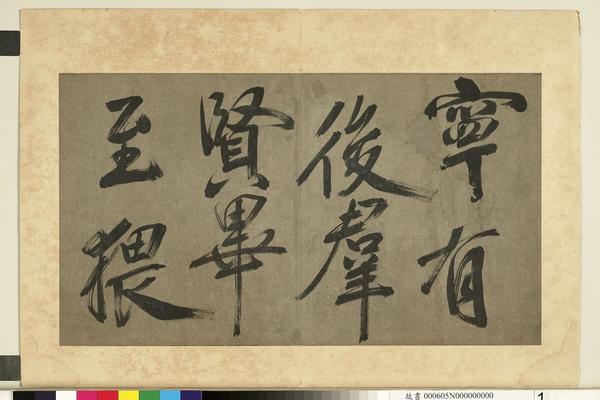 寧有
後羣
賢畢
至猥
故書 000605N000000000
1